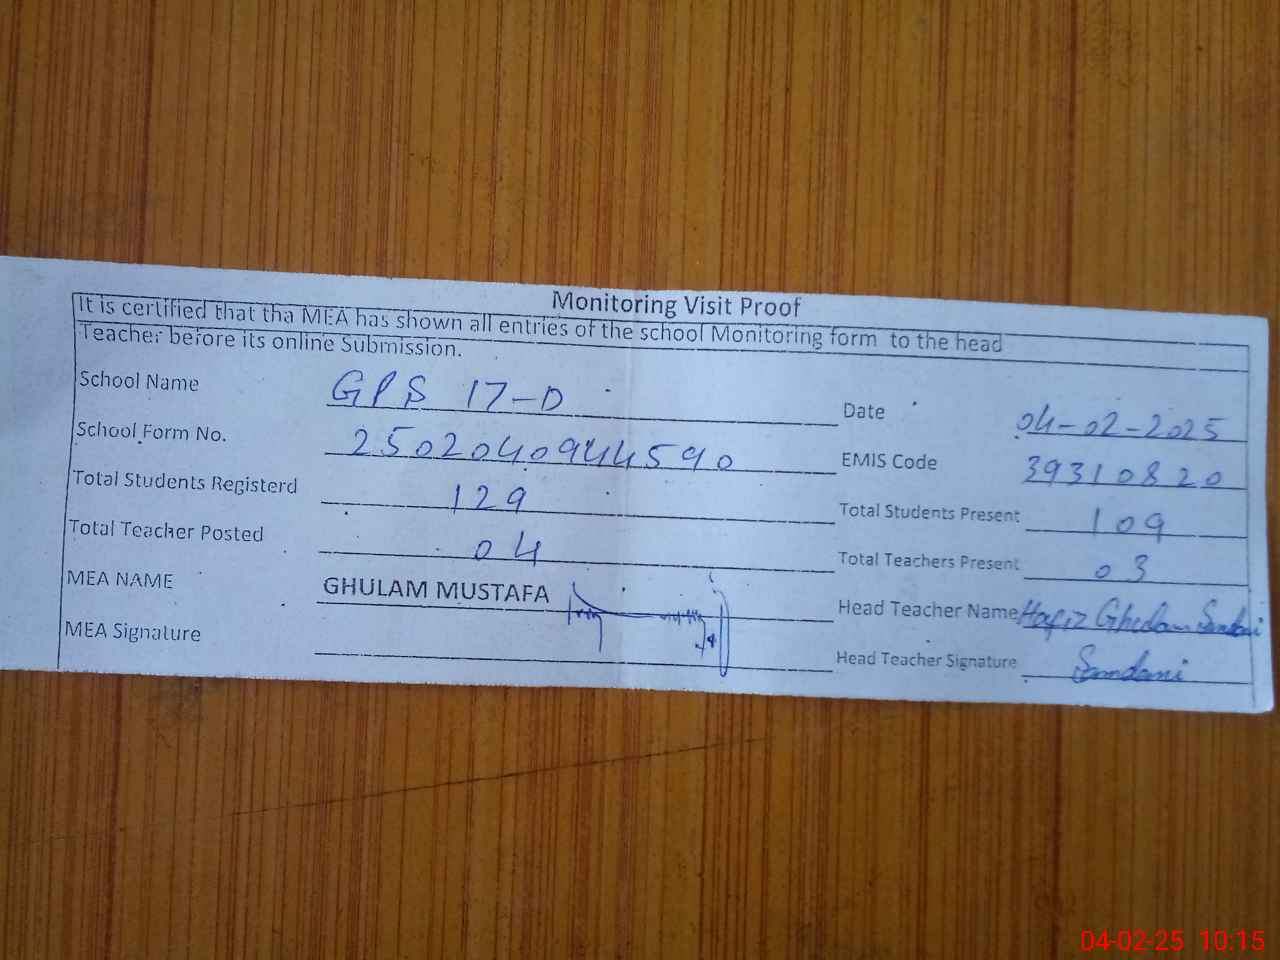 Monitoring Visit Proof
It is certified that tha MEA has shown all entries of the school Monitoring form to the head
Teacher before its online Submission.
School Name GPS 17-D
Date 04-02-2025
School Form No. 2502040944590
EMIS Code 39310820
Total Students Registerd 129
Total Students Present 109
Total Teacher Posted 04
Total Teachers Present 03
MEA NAME GHULAM MUSTAFA
Head Teacher Name Hafiz Ghulam Samdani
MEA Signature
Head Teacher Signature Samdani
04-02-25 10:15